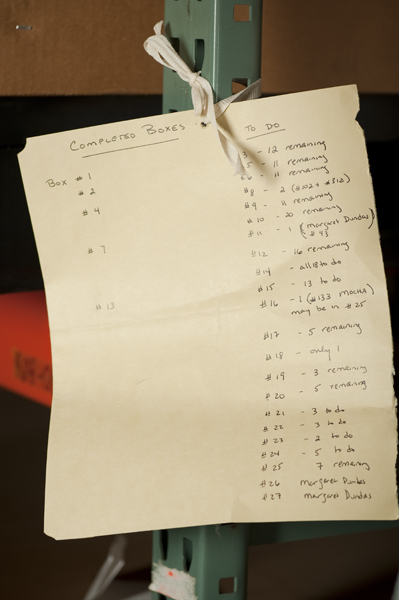 COMPLETED BOXES
Box #1
#2
#4
#7
#13
TO DO
3 - 12 remaining
5 - 11 remaining
#6 - 11 remaining
#8 - 2 (#102 + #312)
#9 - 11 remaining
#10 - 20 remaining
#11 - 1 (Margaret Dundas
#43)
#12 - 16 remaining
#14 - all 18 to do
#15 - 13 to do
#16 - 1 (#133 MOCHA)
may be in #25
#17 - 5 remaining
#18 - only 1
#19 - 3 remaining
#20 - 5 remaining
#21 - 3 to do
#22 - 3 to do
#23 - 2 to do
#24 - 5 to do
#25 7 remaining
#26 Margaret Dundas
#27 Margaret Dundas